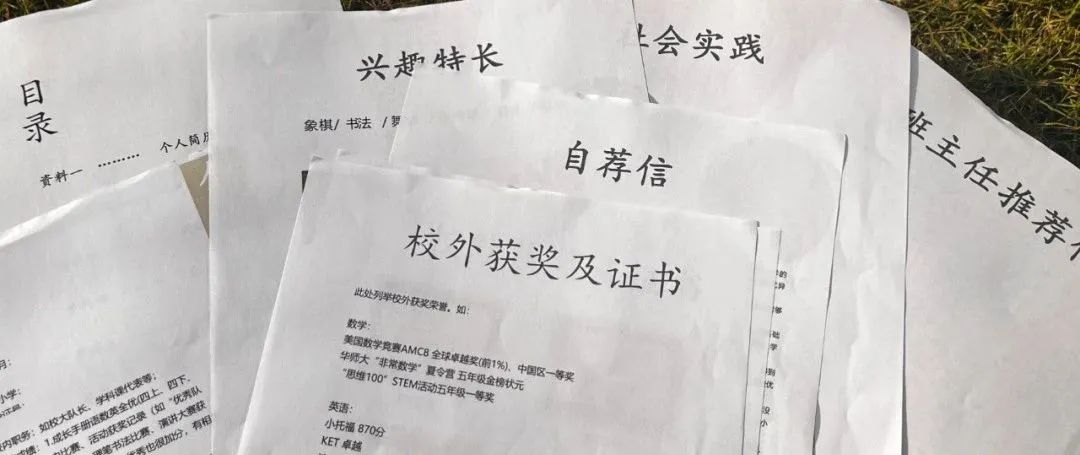 目录
资料一 ……… 个人简历
兴趣特长
象棋/ 书法 /舞
社会实践
班主任推荐信
自荐信
校外获奖及证书
此处列举校外获奖荣誉。如：
数学：
美国数学竞赛AMC8 全球卓越奖(前1%)、中国区一等奖
华师大“非常数学”夏令营 五年级金榜状元
“思维100”STEM活动五年级一等奖
英语：
小托福 870分
KET 卓越
月：
小学：
内职务：如校大队长、学科课代表等；
绩：1.成长手册语数英全优(四上、四下、
比赛、活动获奖记录（如“优秀队
硬笔书法比赛、演讲大赛获
秀也很加分，有相
的
异
够
础
学
到
优
没
小